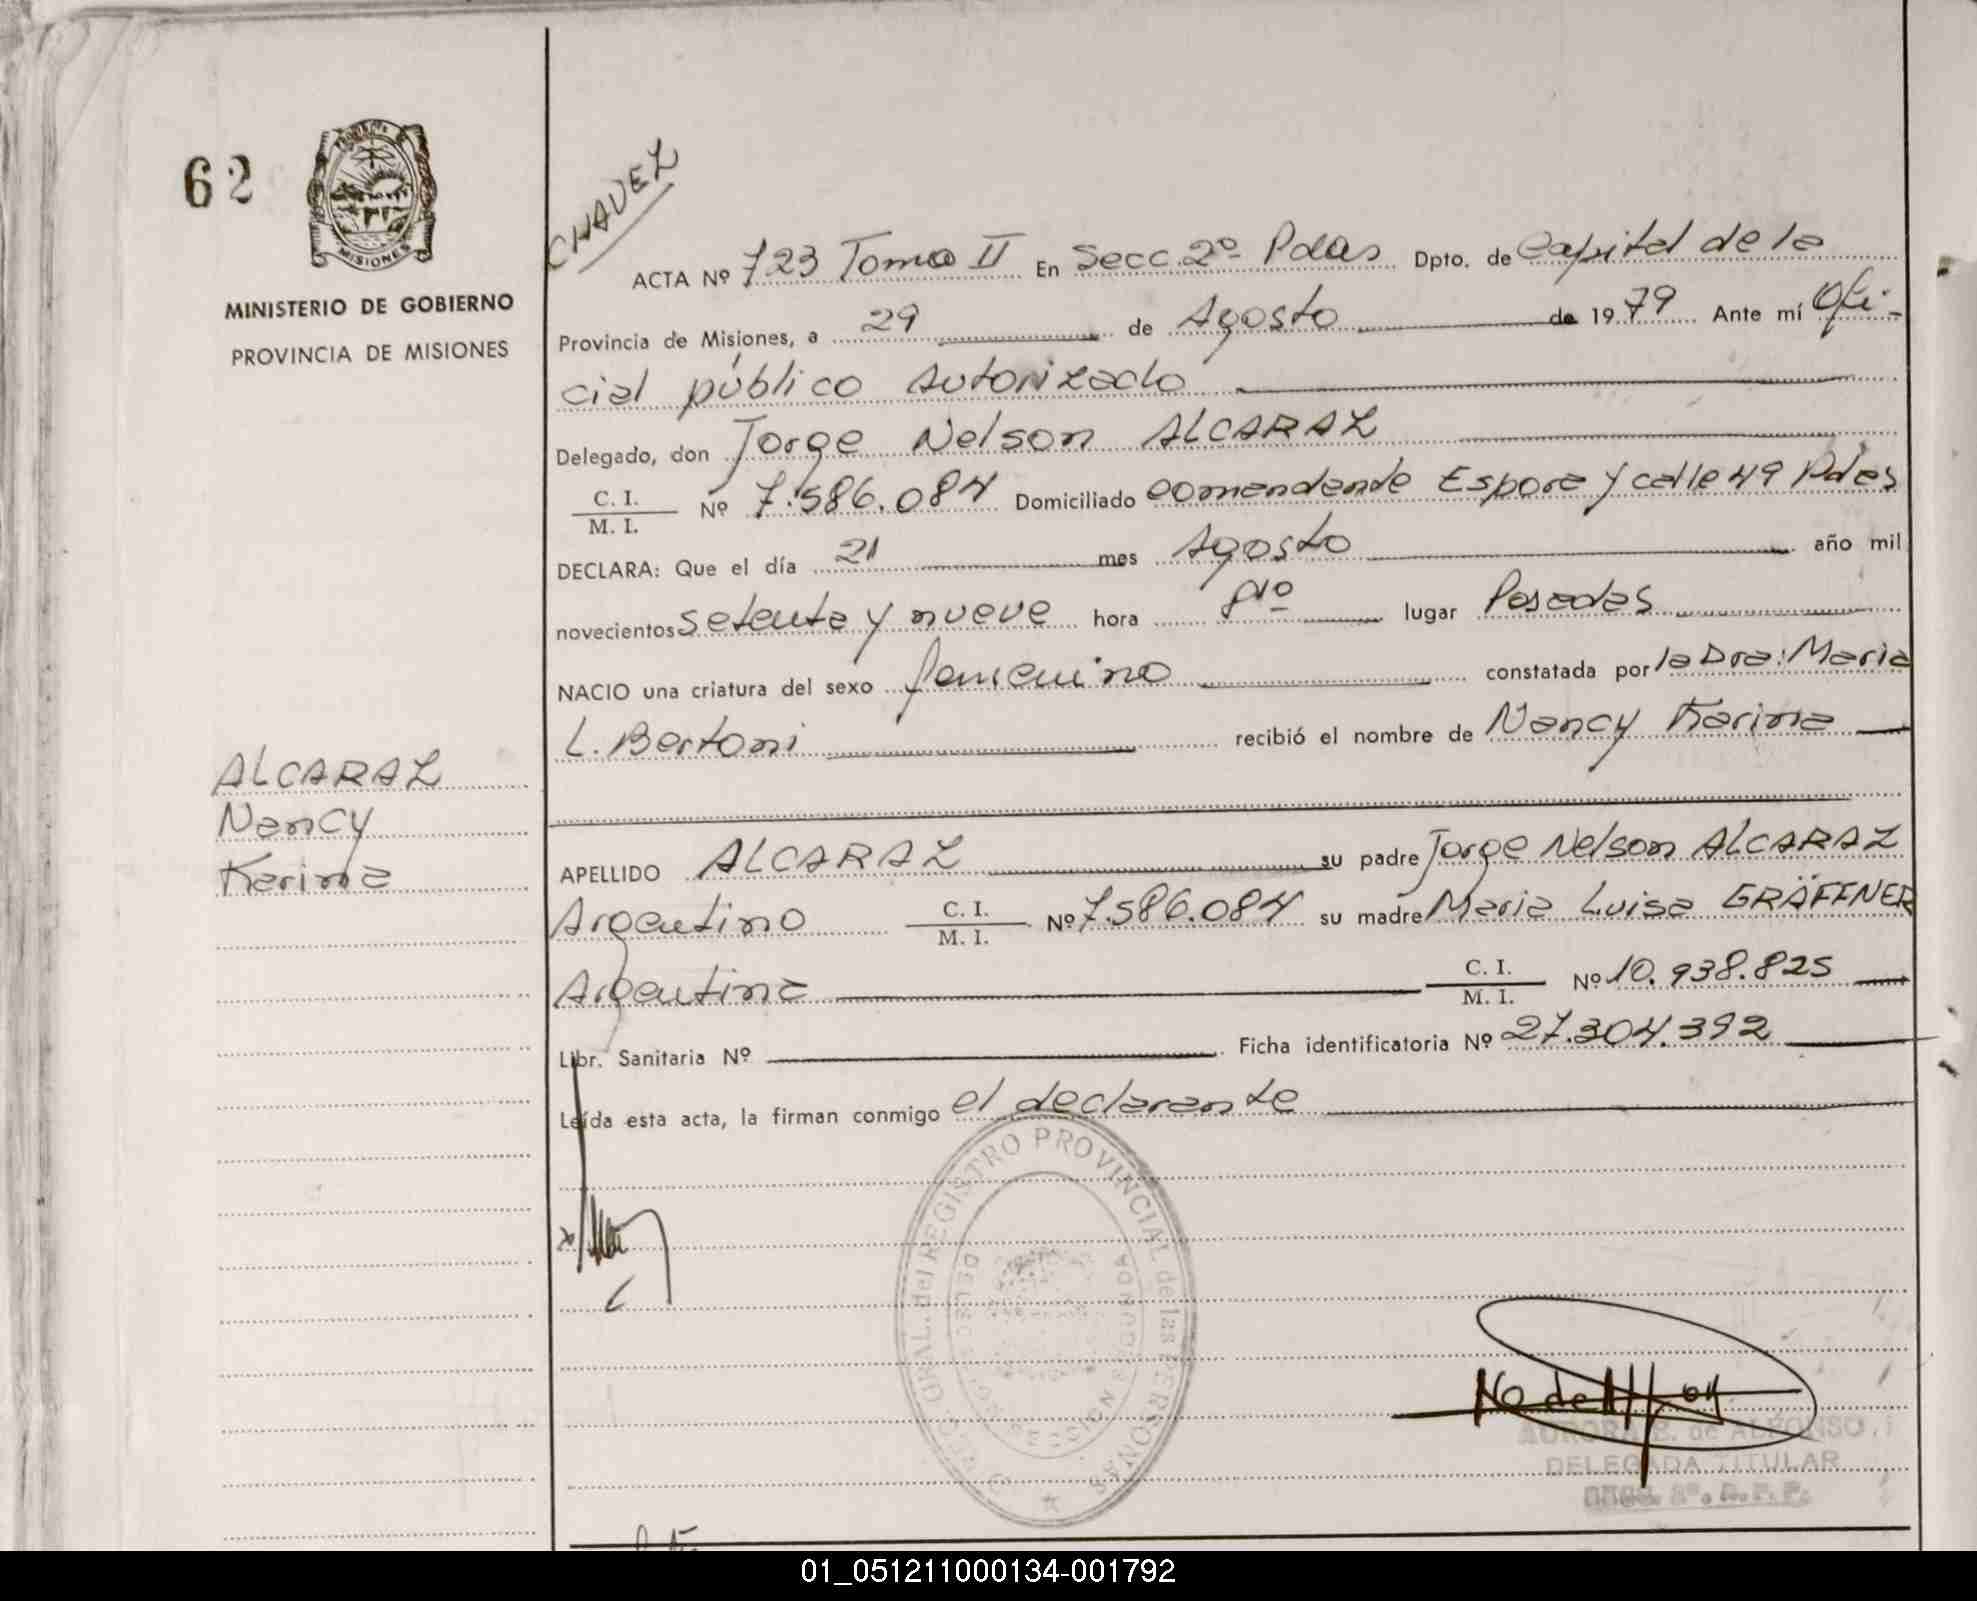 62
MISIONES
MINISTERIO DE GOBIERNO
PROVINCIA DE MISIONES
ALCARAZ
Nancy
Karina
CHAVEZ
ACTA Nº 723 Tomo II En Secc. 2º Pdas Dpto. de Capital de la
Provincia de Misiones, a 29 de Agosto de 1979 Ante mí Ofi-
cial público Autorizado
Delegado, don Jorge Nelson ALCARAZ
C. I.
M. I. Nº 7.586.084 Domiciliado comandande Espora y calle 49 Pdas
DECLARA: Que el día 21 mes Agosto año mil
novecientos setenta y nueve hora 8 10 lugar Posadas
NACIO una criatura del sexo femenino constatada por la Dra: Maria
L. Bertoni recibió el nombre de Nancy Karina
APELLIDO ALCARAZ su padre Jorge Nelson ALCARAZ
Argentino C. I.
M. I. Nº 7.586.084 su madre Maria Luisa GRÄFFNER
Argentina C. I.
M. I. Nº 10.938.825
Libr. Sanitaria Nº Ficha identificatoria Nº 27.304.392
Leída esta acta, la firman conmigo el declarante
GRAL. del REGISTRO PROVINCIAL de las PERSONAS
AURORA E. de ALFONSO
DELEGADA TITULAR
01_051211000134-001792